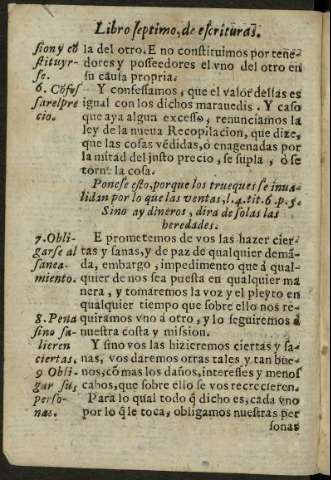 Libro septimo, de escrituras.
sion y cõ
stituyr-
se.
6. Cõfes
sar el pre
cio.
7. Obli-
garse al
sanea-
miento.
8. Pena
si no sa-
lieren
ciertas.
9 Obli-
gar sus
perso-
nas.
la del otro. E no constituimos por tene-
dores y posseedores el vno del otro en
su causa propria.
Y confessamos, que el valor dellas es
igual con los dichos marauedis. Y caso
que aya algun excesso, renunciamos la
ley de la nueua Recopilacion, que dize,
que las cosas vẽdidas, ò enagenadas por
la mitad del justo precio, se supla, ò se
torne la cosa.
Ponese esto, porque los trueques se inua-
lidan por lo que las ventas, l. 4. tit. 6. p. 5.
Si no ay dineros, dira de solas las
heredades.
E prometemos de vos las hazer cier-
tas y sanas, y de paz de qualquier demã-
da, embargo, impedimento que à qual-
quier de nos sea puesta en qualquier ma
nera, y tomaremos la voz y el pleyto en
qualquier tiempo que sobre ello nos re-
quiramos vno à otro, y lo seguiremos à
nuestra costa y mission.
Y si no vos las hizieremos ciertas y sa-
nas, vos daremos otras tales y tan bue-
nos, cõ mas los daños, interesses y menos
cabos, que sobre ello se vos recrecieren.
Para lo qual todo q̃ dicho es, cada vno
por lo q̃ le toca, obligamos nuestras per
sonas